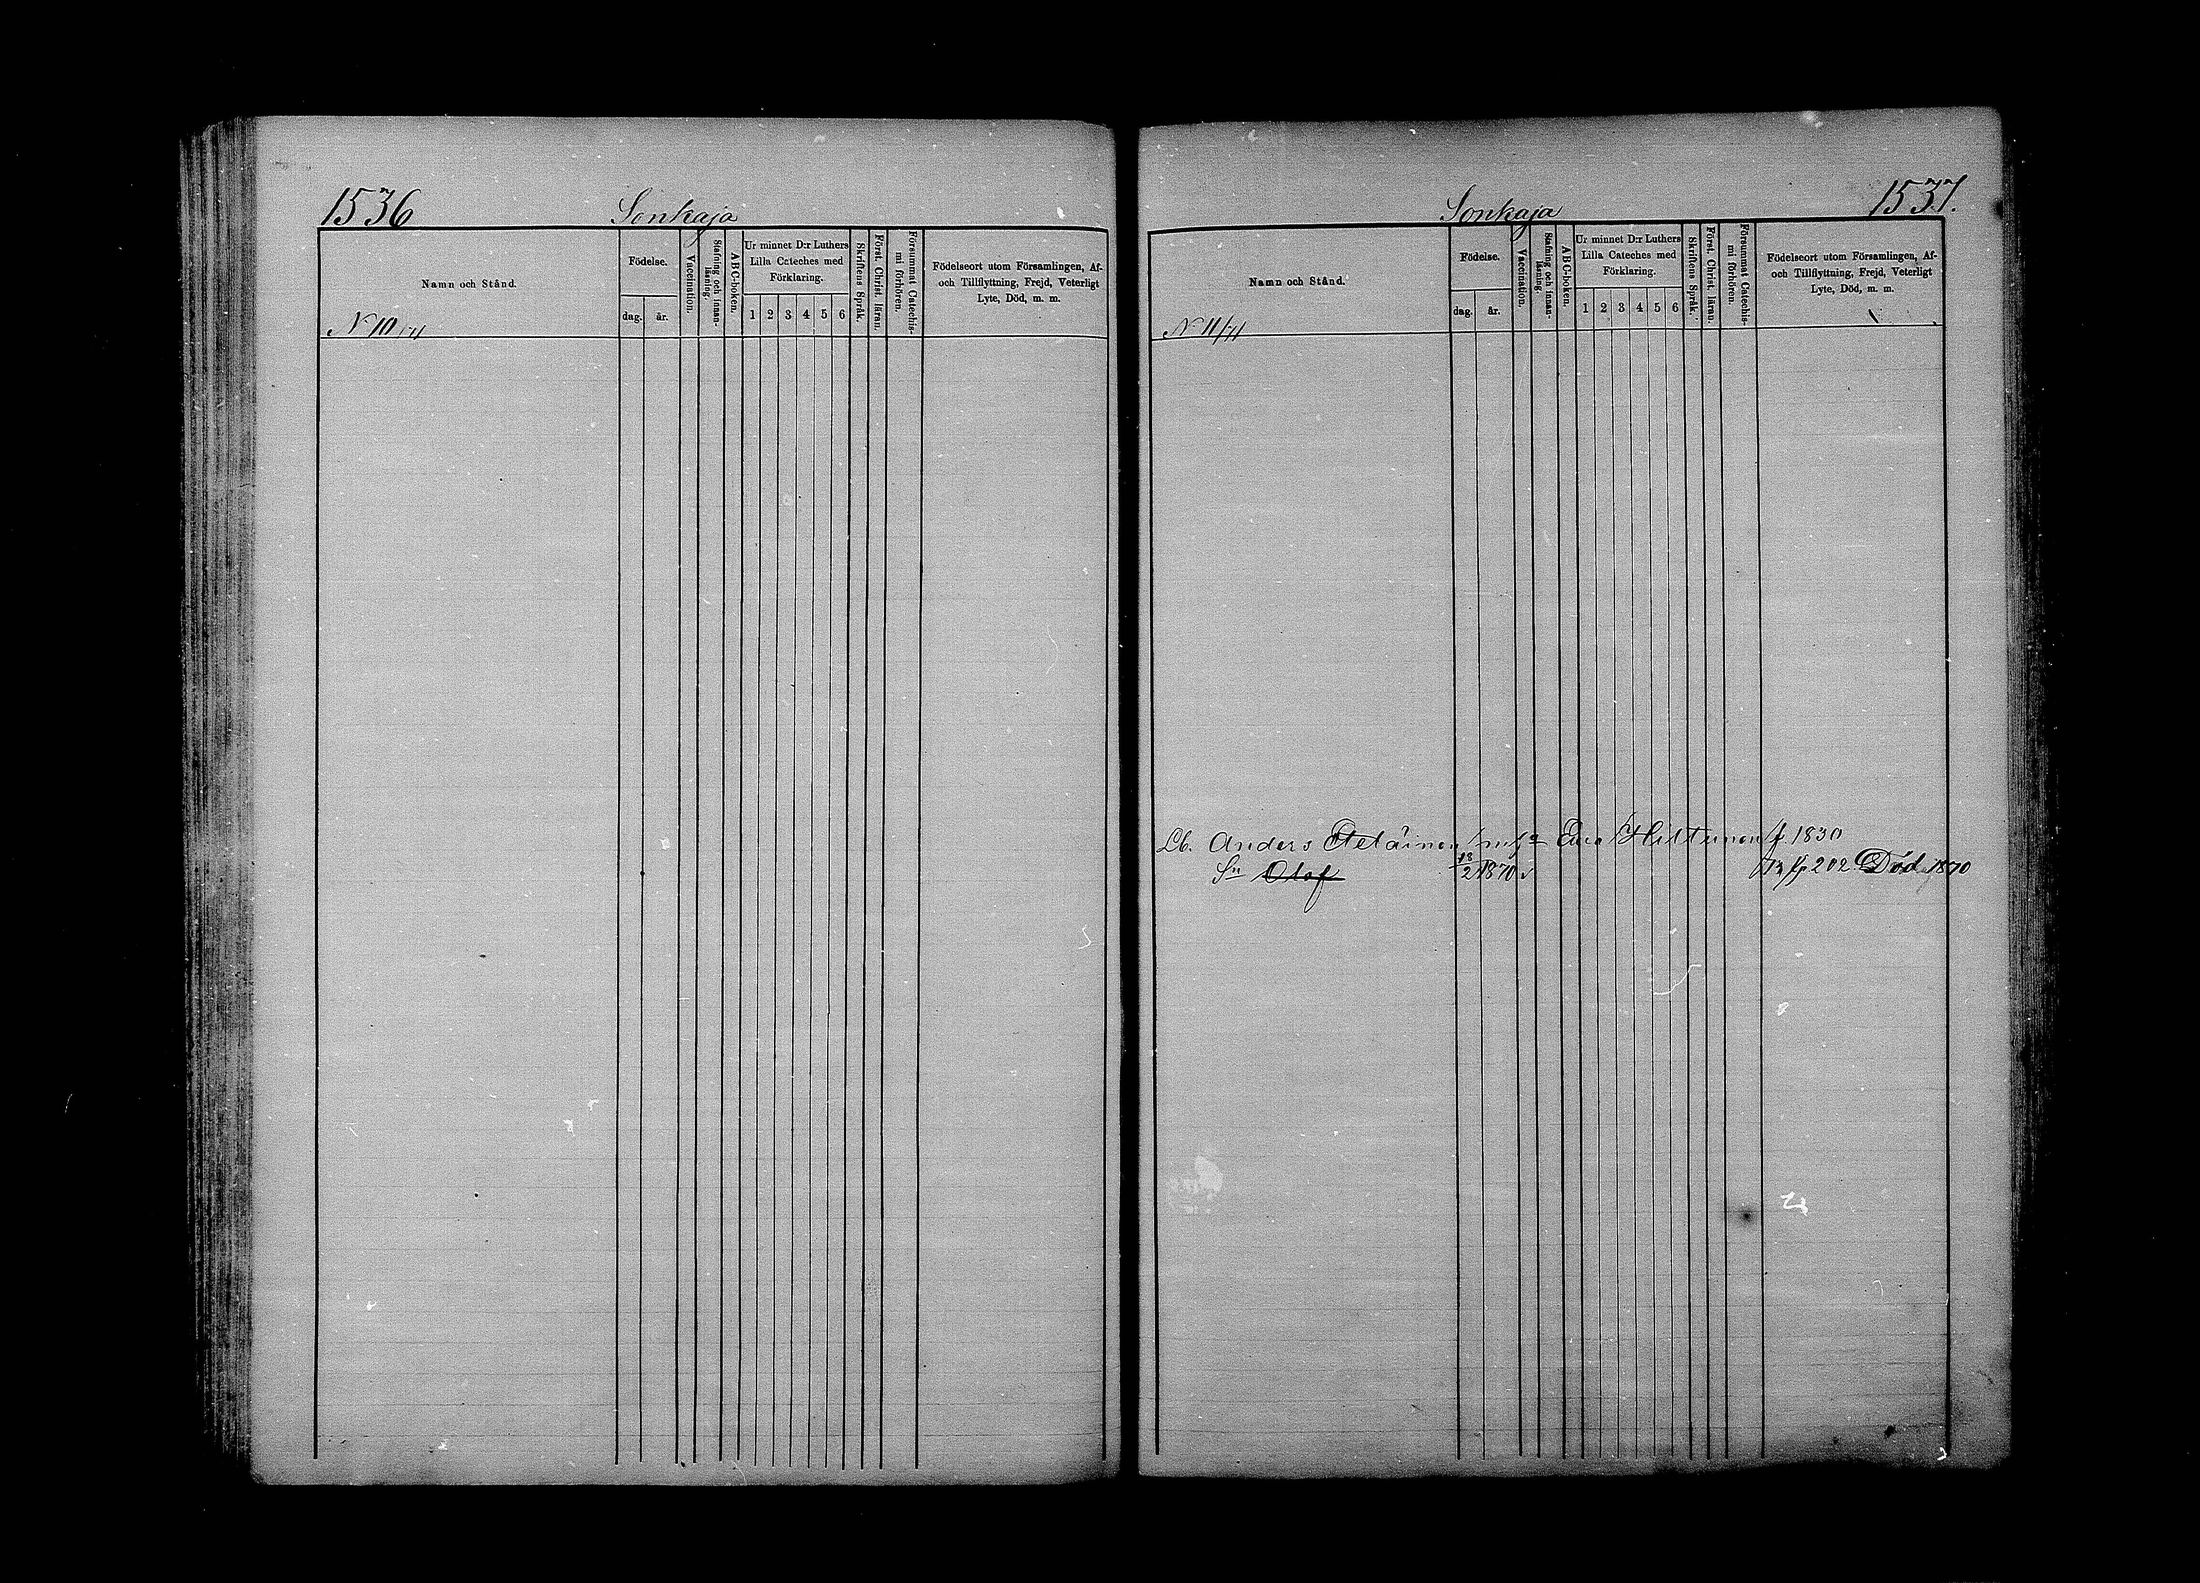 1536
Sonkaja
Namn och Stånd.
Födelse.
dag.
år.
Vaccination.
Stafning och innanläsning.
ABC-boken.
Ur minnet D:r Luthers
Lilla Cateches med
Förklaring.
1 2 3 4 5 6
Skriftens Språk.
Först. Christ. läran.
Försummat Catechismi förhören.
Födelseort utom Församlingen, Af-
och Tillflyttning, Frejd, Veterligt
Lyte, Död, m. m.
N 10/71
Sonkaja
1537.
Namn och Stånd.
Födelse.
dag.
år.
Vaccination.
Stafning och innanläsning.
ABC-boken.
Ur minnet D:r Luthers
Lilla Cateches med
Förklaring.
1 2 3 4 5 6
Skriftens Språk.
Först. Christ. läran.
Försummat Catechismi förhören.
Födelseort utom Församlingen, Af-
och Tillflyttning, Frejd, Veterligt
Lyte, Död, m. m.
N 11/71
Lb. Anders Eteläinen Hiltunen f. 1830
Sn Olof 18/2 1870 202 Död 1870